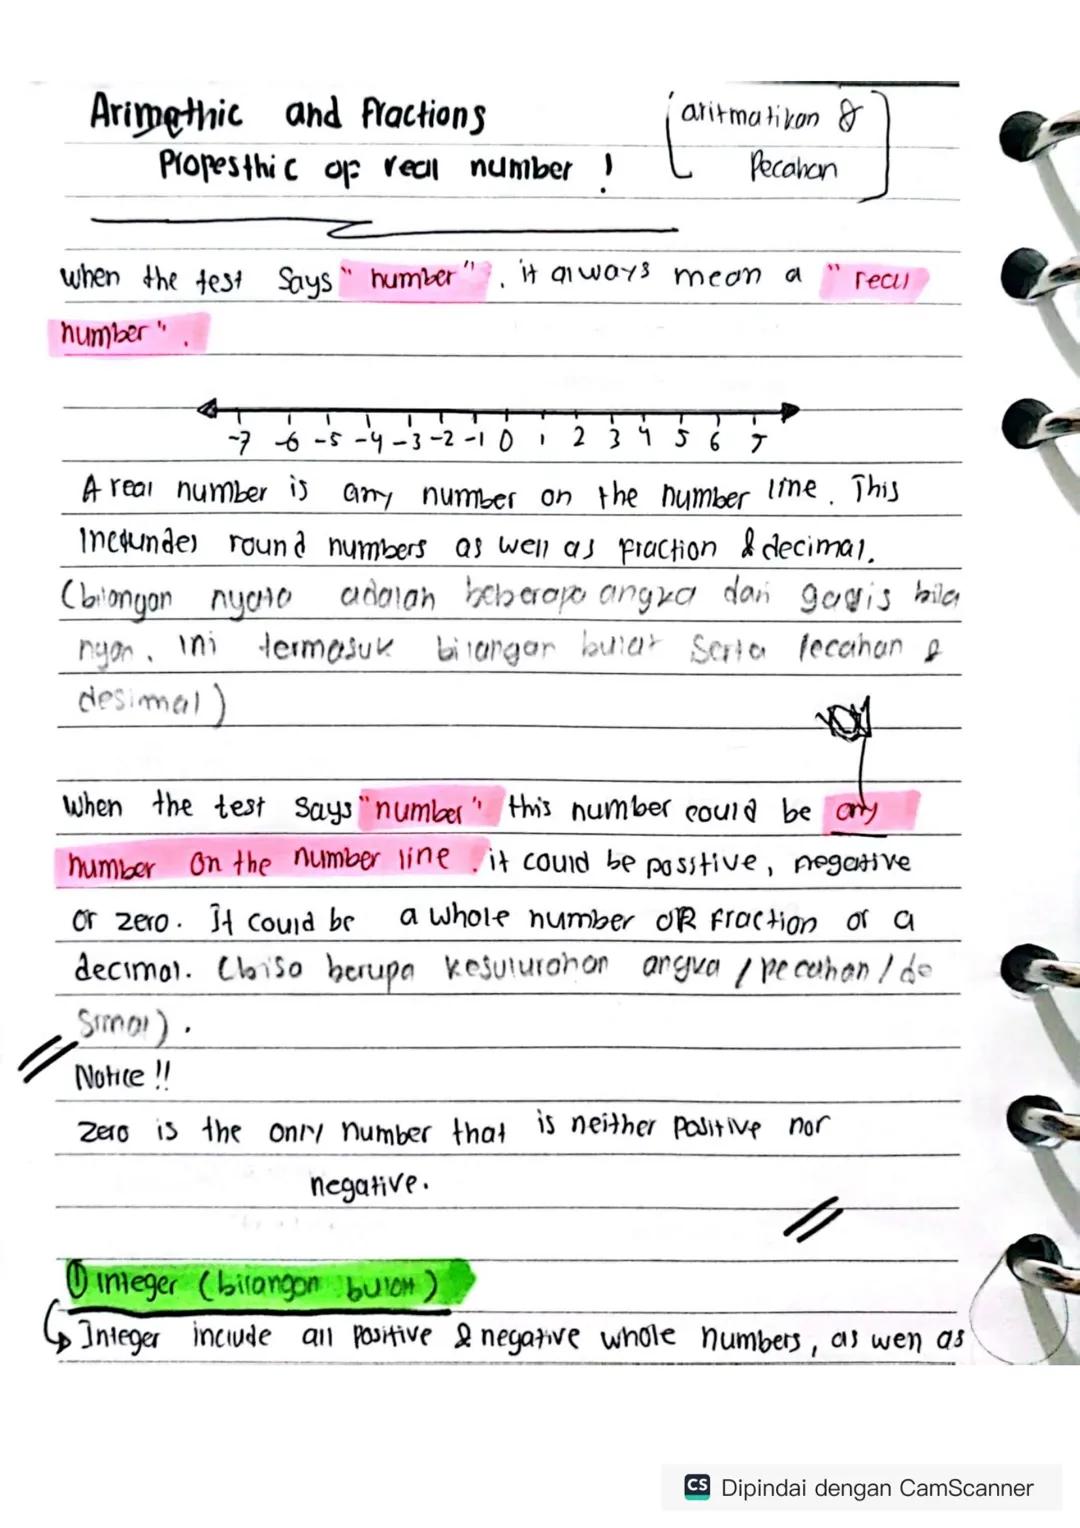 Arimethic and Fractions
(aritmatikan &
Pecahan)
Propesthic of real number !
when the test Says "number". it always mean a "real
number".
-7 -6 -5 -4 -3 -2 -1 0 1 2 3 4 5 6 7
A real number is any number on the number line. This
round numbers as well as fraction & decimal.
(bilangan nyata adalah beberapa angka dari garis bila
ngan. ini termasuk bilangan bulat Serta Pecahan &
desimal)
When the test Says "number" this number could be any
number on the number line. it could be positive, negative
or zero. It could be a whole number OR fraction or a
decimal. (bisa berupa keseluruhan angka / pecahan / de
Simal).
Notice !!
Zero is the only number that is neither Positive nor
negative.
① integer (bilangan bulat)
↳ Integer include all positive & negative whole numbers, as well as
CS Dipindai dengan CamScanner